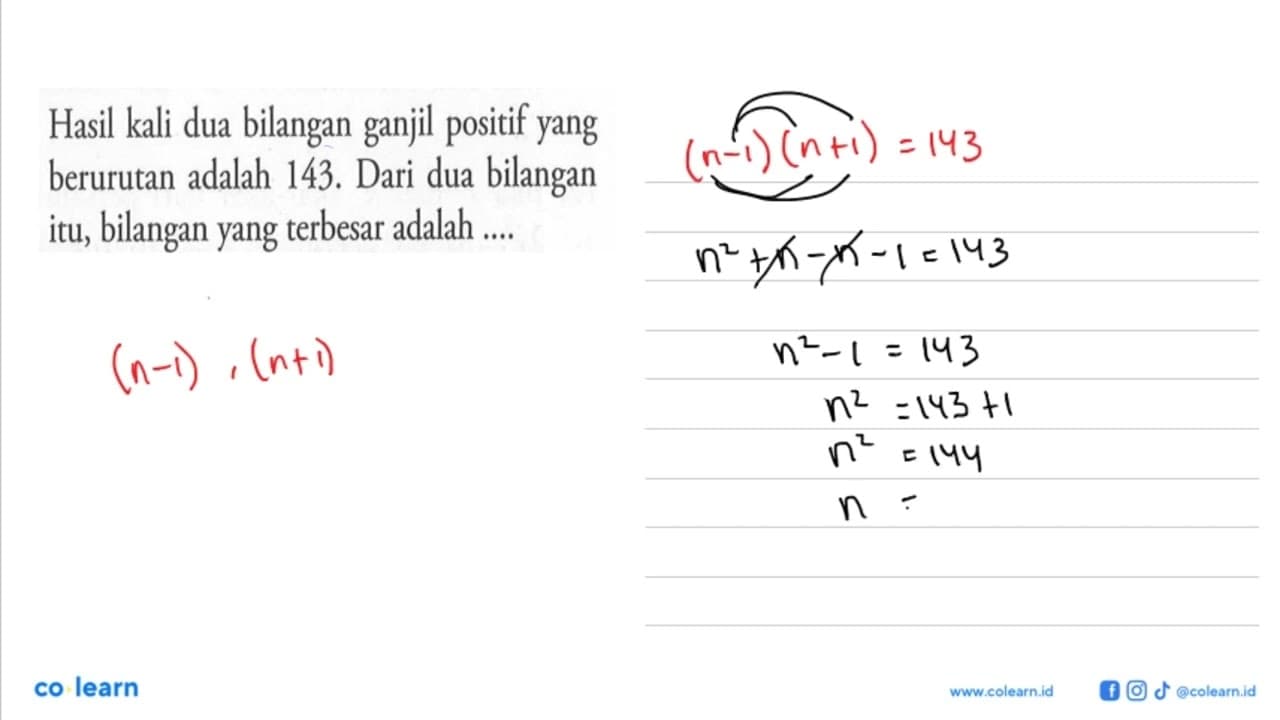 Hasil kali dua bilangan ganjil positif yang
berurutan adalah 143. Dari dua bilangan
itu, bilangan yang terbesar adalah ....
(n-1) , (n+1)
(n-1) (n+1) = 143
n² + n - n - 1 = 143
n² - 1 = 143
n² = 143 + 1
n² = 144
n =
co learn
www.colearn.id
@colearn.id